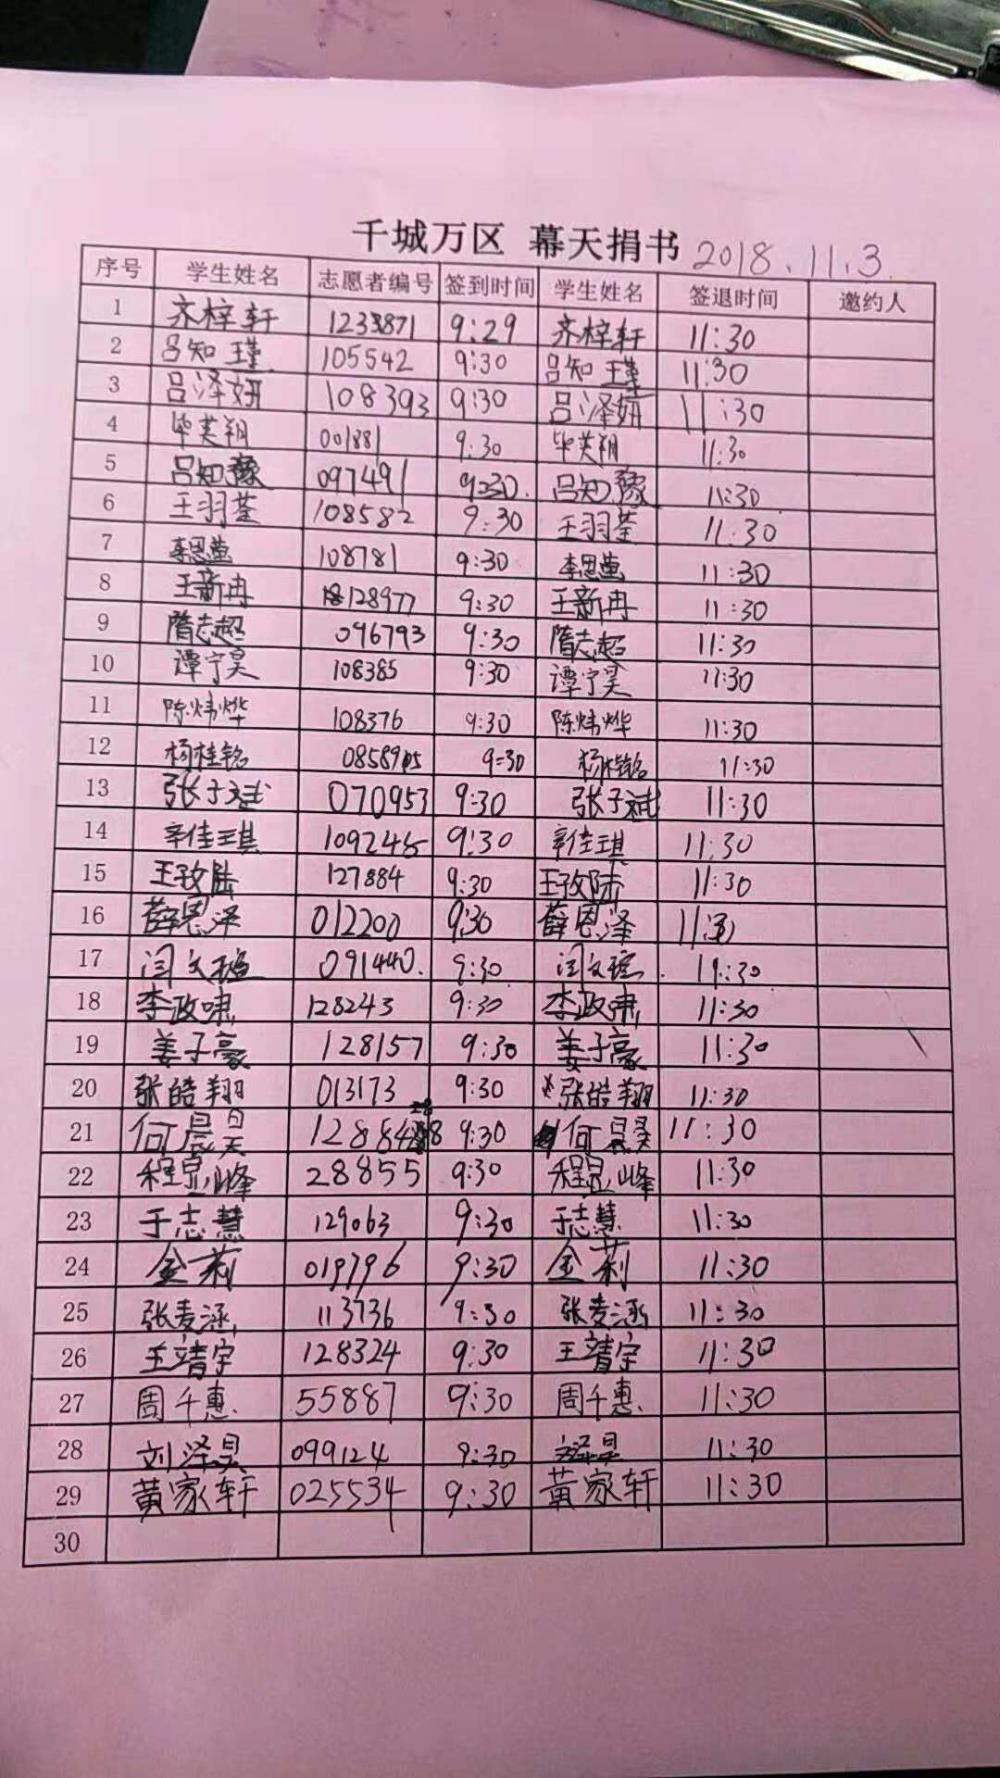 千城万区 幕天捐书 2018.11.3
序号 学生姓名 志愿者编号 签到时间 学生姓名 签退时间 邀约人
1 齐梓轩 1233871 9:29 齐梓轩 11:30
2 吕知瑾 105542 9:30 吕知瑾 11:30
3 吕泽妍 108393 9:30 吕泽妍 11:30
4 毕英翔 001881 9:30 毕英翔 11:30
5 吕知豫 097491 9:30 吕知豫 11:30
6 王羽荃 108582 9:30 王羽荃 11:30
7 李思萱 108781 9:30 李思萱 11:30
8 王新冉 128977 9:30 王新冉 11:30
9 隋志超 096793 9:30 隋志超 11:30
10 谭宁昊 108385 9:30 谭宁昊 11:30
11 陈炜烨 108376 9:30 陈炜烨 11:30
12 杨桂铭 9:30 杨桂铭 11:30
13 张子斌 070953 9:30 张子斌 11:30
14 辛佳琪 9:30 辛佳琪 11:30
15 王玫陆 127884 9:30 王玫陆 11:30
16 薛恩泽 012200 9:30 薛恩泽
17 闫文瑄 091440. 9:30 闫文瑄 11:30
18 李政啸 128243 9:30 李政啸 11:30
19 姜子豪 128157 9:30 姜子豪 11:30
20 张皓翔 013173 9:30 张皓翔 11:30
21 何晨昊 9:30 何晨昊 11:30
22 程显峰 28855 9:30 程显峰 11:30
23 于志慧 129063 9:30 于志慧 11:30
24 金莉 019796 9:30 金莉 11:30
25 张麦涵 113736 9:30 张麦涵 11:30
26 王靖宇 128324 9:30 王靖宇 11:30
27 周千惠 55887 9:30 周千惠 11:30
28 刘泽昊 099124 9:30 11:30
29 黄家轩 025534 9:30 黄家轩 11:30
30